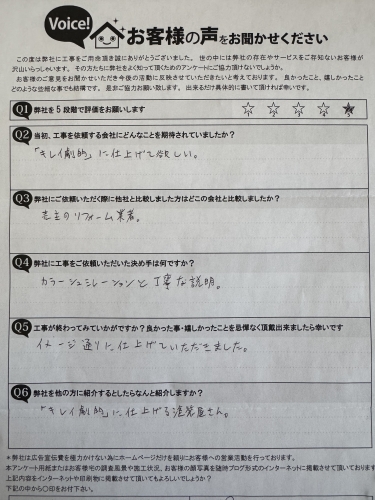 Voice!
お客様の声をお聞かせください
この度は弊社に工事をご用命頂き誠にありがとうございました。 世の中には弊社の存在やサービスをご存知ないお客様が
沢山いらっしゃいます。その方たちに弊社をよく知って頂くためのアンケートにご協力頂けないでしょうか。
お客様のご意見をお聞かせいただき今後の活動に反映させていただきたいと考えております。 良かったこと、嬉しかったこと
どのような些細な事でも結構です。 是非ご協力お願い致します。 出来るだけ具体的に書いて頂ければ幸いです。
Q1 弊社を5段階で評価をお願いします ☆ ☆ ☆ ☆ ★
Q2 当初、工事を依頼する会社にどんなことを期待されていましたか?
「キレイ劇的」に仕上げて欲しい。
Q3 弊社にご依頼いただく際に他社と比較しました方はどこの会社と比較しましたか?
のリフォーム業者。
Q4 弊社に工事をご依頼いただいた決め手は何ですか?
カラーシュミレーションと丁寧な説明。
Q5 工事が終わってみていかがですか?良かった事・嬉しかったことを忌憚なく頂戴出来ましたら幸いです
イメージ通りに仕上げていただきました。
Q6 弊社を他の方に紹介するとしたらなんと紹介しますか?
「キレイ劇的」に仕上げる塗装屋さん。
*弊社は広告宣伝費を極力かけない為にホームページだけを頼りにお客様への営業活動を行っております。
本アンケート用紙またはお客様宅の調査風景や施工状況、お客様の顔写真を随時ブログ形式のインターネットに掲載させて頂いております
上記内容をインターネットや印刷物に掲載させて頂いてもよろしいでしょうか?
下記の中から〇印をお付け下さい。